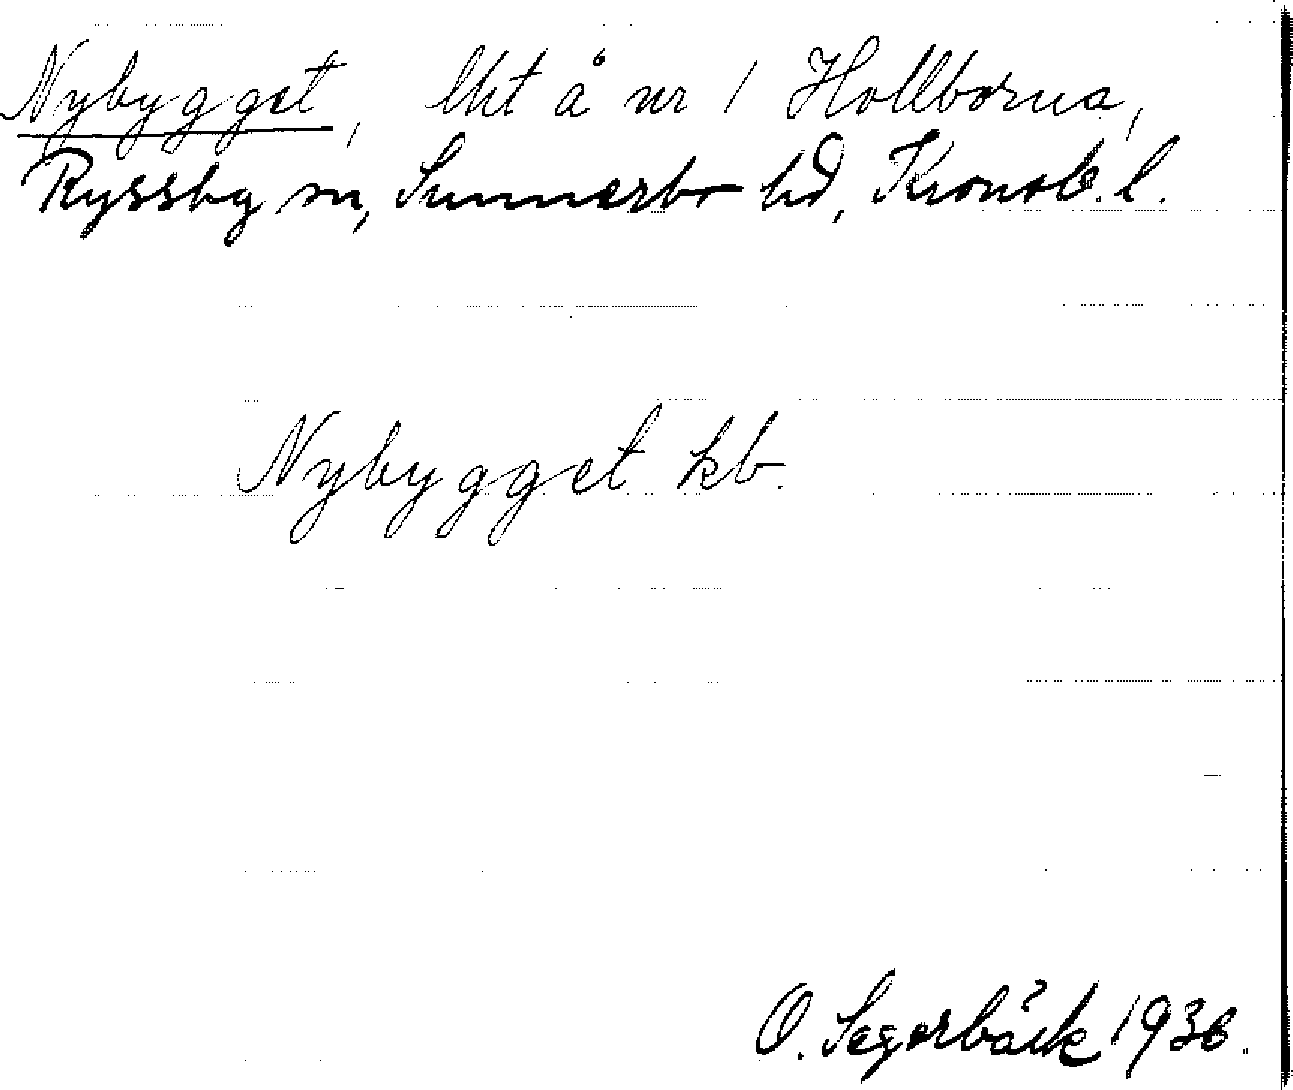 Nybygget, lht å nr 1 Hollborna,
Ryssby sn, Sunnerbo hd, Kronob. l.
Nybygget kb.
O. Segerbäck 1936.